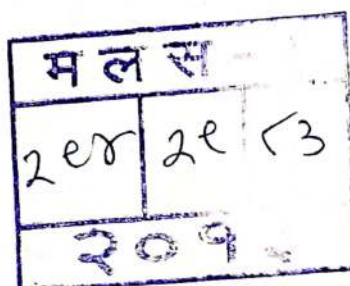 मलस
२९४ २९ ८३
२०१